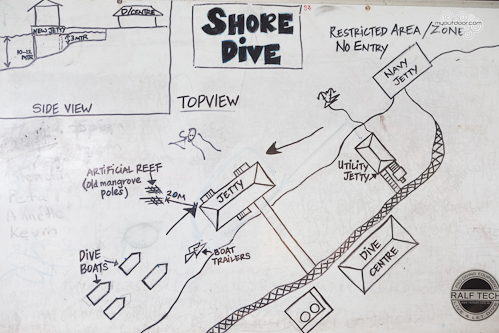 SHORE
DIVE
54
myoutdoor.com
RESTRICTED AREA/ZONE
NO ENTRY
D/CENTRE
NEW JETTY
3 MTR
10-12
MTR
SIDE VIEW
TOPVIEW
NAVY
JETTY
UTILITY
JETTY
ARTIFICIAL REEF
(old mangrove
poles)
20M
JETTY
DIVE
BOATS
BOAT
TRAILERS
DIVE
CENTRE
RALF TECH